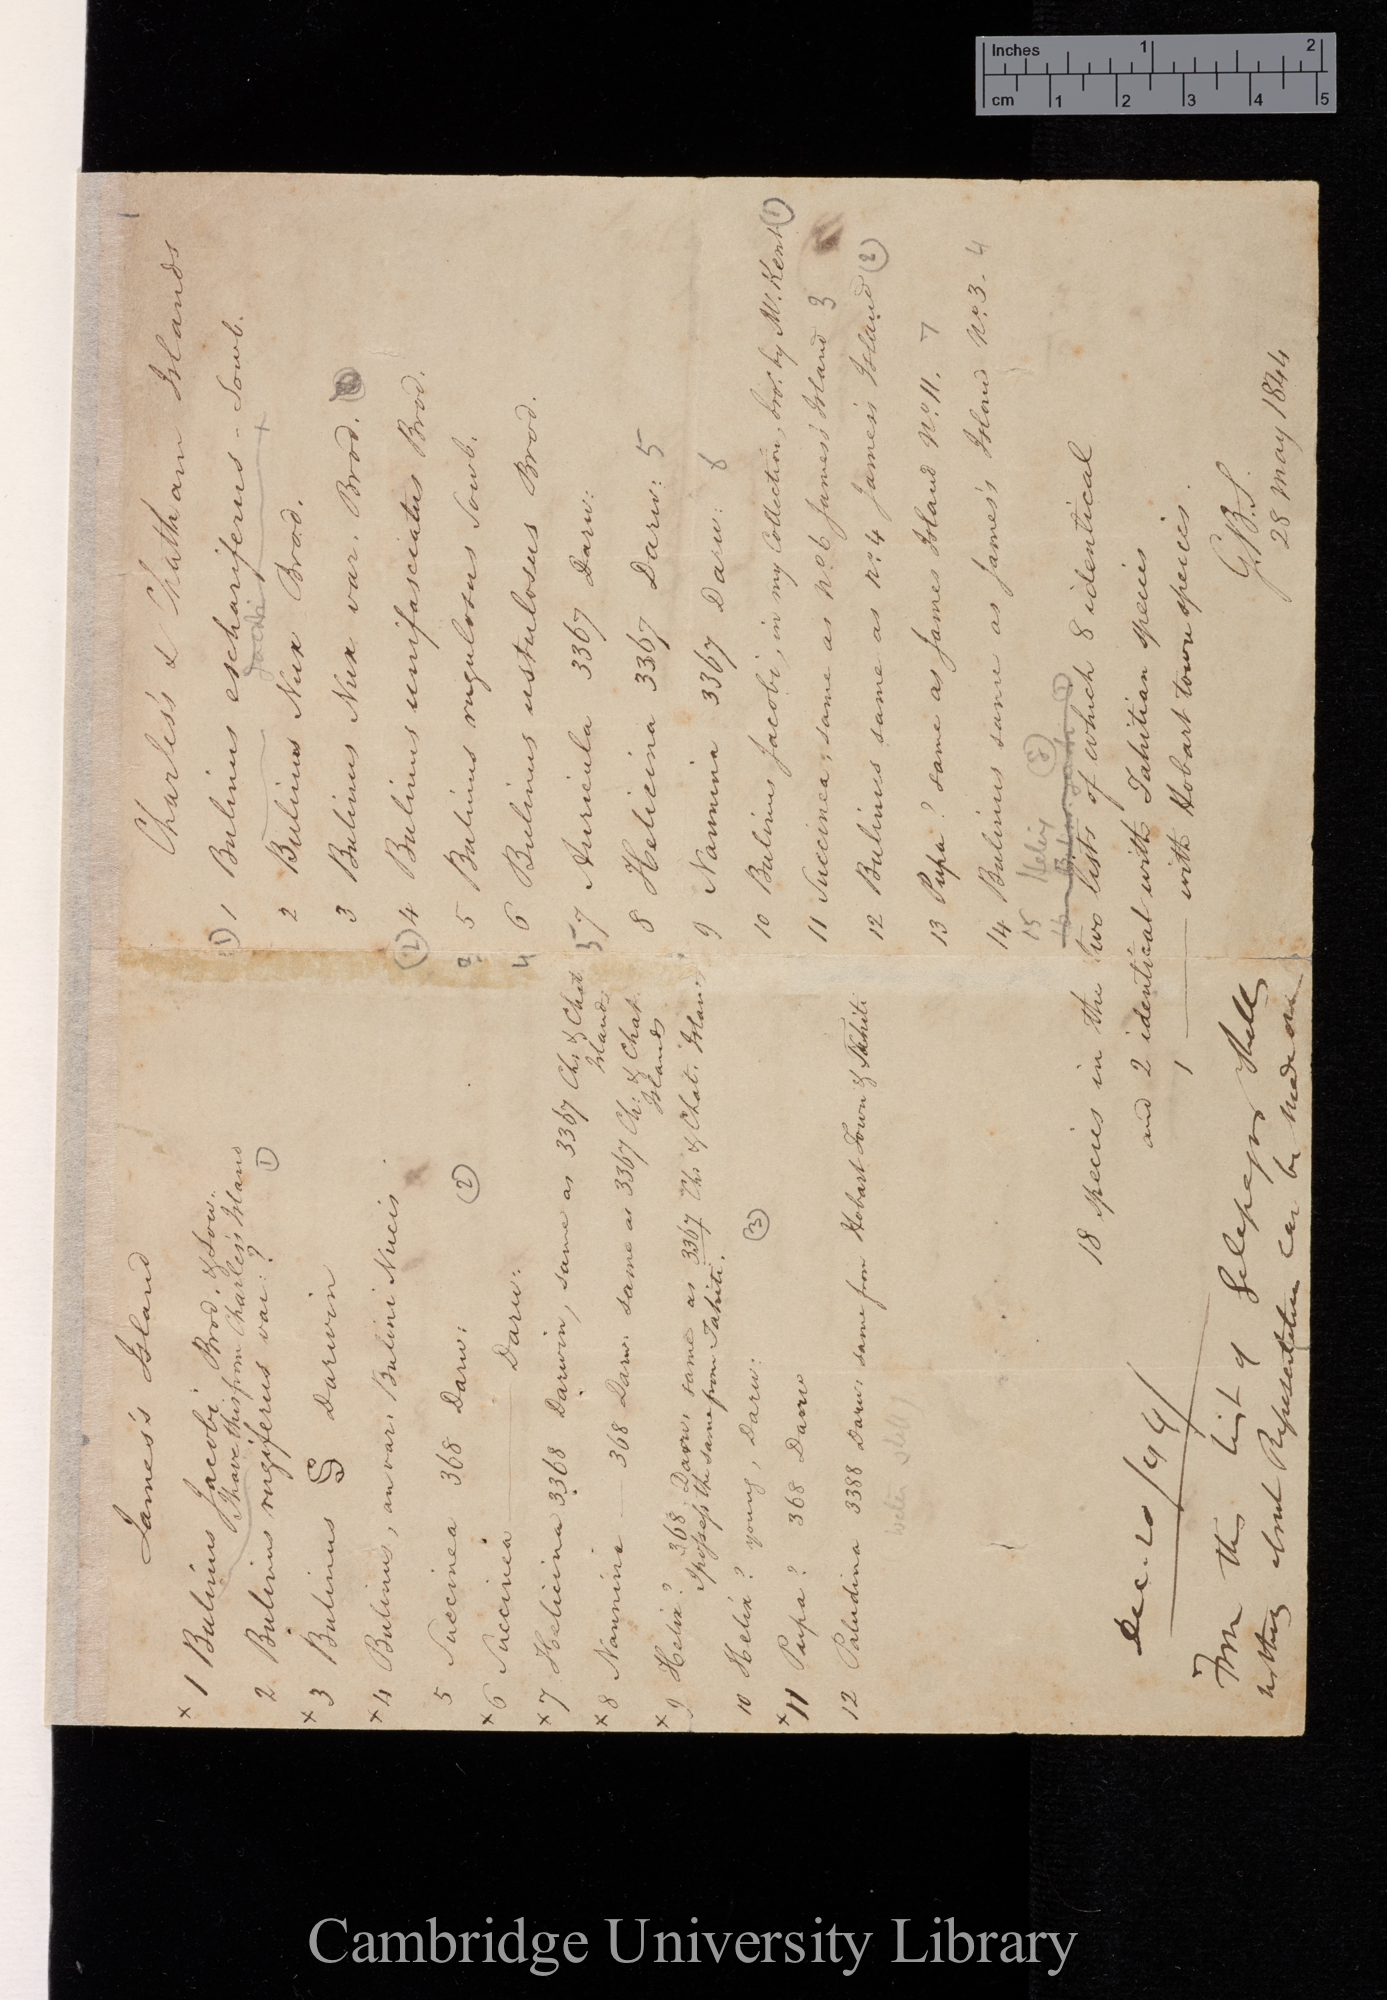 James's Island
x 1 Bulinus Jacobi Brod. & Sow.
I have this from Charles's Island
2 Bulinus rugiferus var: ? (1)
x 3 Bulinus S Darwin
x 4 Bulinus, an var. Bulini Nucis
5 Succinea 368 Darw: (2)
x 6 Succinea —— Darw:
x 7 Helicina 3368 Darwin, same as 3367 Ch: & Chat
Islands
x 8 Nannina —— 368 Darw. same as 3367 Ch: & Chat.
Islands
x 9 Helix? 368 Darw. same as 3367 Ch: & Chat: Islan:
I possess the same from Tahiti.
10 Helix? young, Darw: (3)
x 11 Pupa? 368 Darw
12 Paludina 3388 Darw. same from Hobart Town & Tahiti
Charles's & Chatham Islands
(1) 1 Bulinus eschariferus - Sowb.
Jacobi +
2 Bulinus Nux Brod.
3 Bulinus Nux var. Brod.
(2) 4 Bulinus unifasciatus Brod.
5 Bulinus rugulosus Sowb.
4 6 Bulinus ustulosus Brod.
5 7 Auricula 3367 Darw:
8 Helicina 3367 Darw: 5
9 Nannina 3367 Darw: 6
10 Bulinus Jacobi, in my Collection, bro.t by Mr. Kent (1)
11 Succinea, same as no. 6 James's Island 3
12 Bulinus same as no. 4 James's Island (2)
13 Pupa? same as James Island No. 11. 7
14 Bulinus same as James's Island No. 3. 4
15 Helix
18 species in the two lists of which 8 identical
and 2 identical with Tahitian species
1 —— with Hobart town species.
G.B.S.
28 May 1844
Dec. 20/44/
From this list of Galapagos Shells
nothing about Representation can be made out
Inches 1 2
cm 1 2 3 4 5
Cambridge University Library